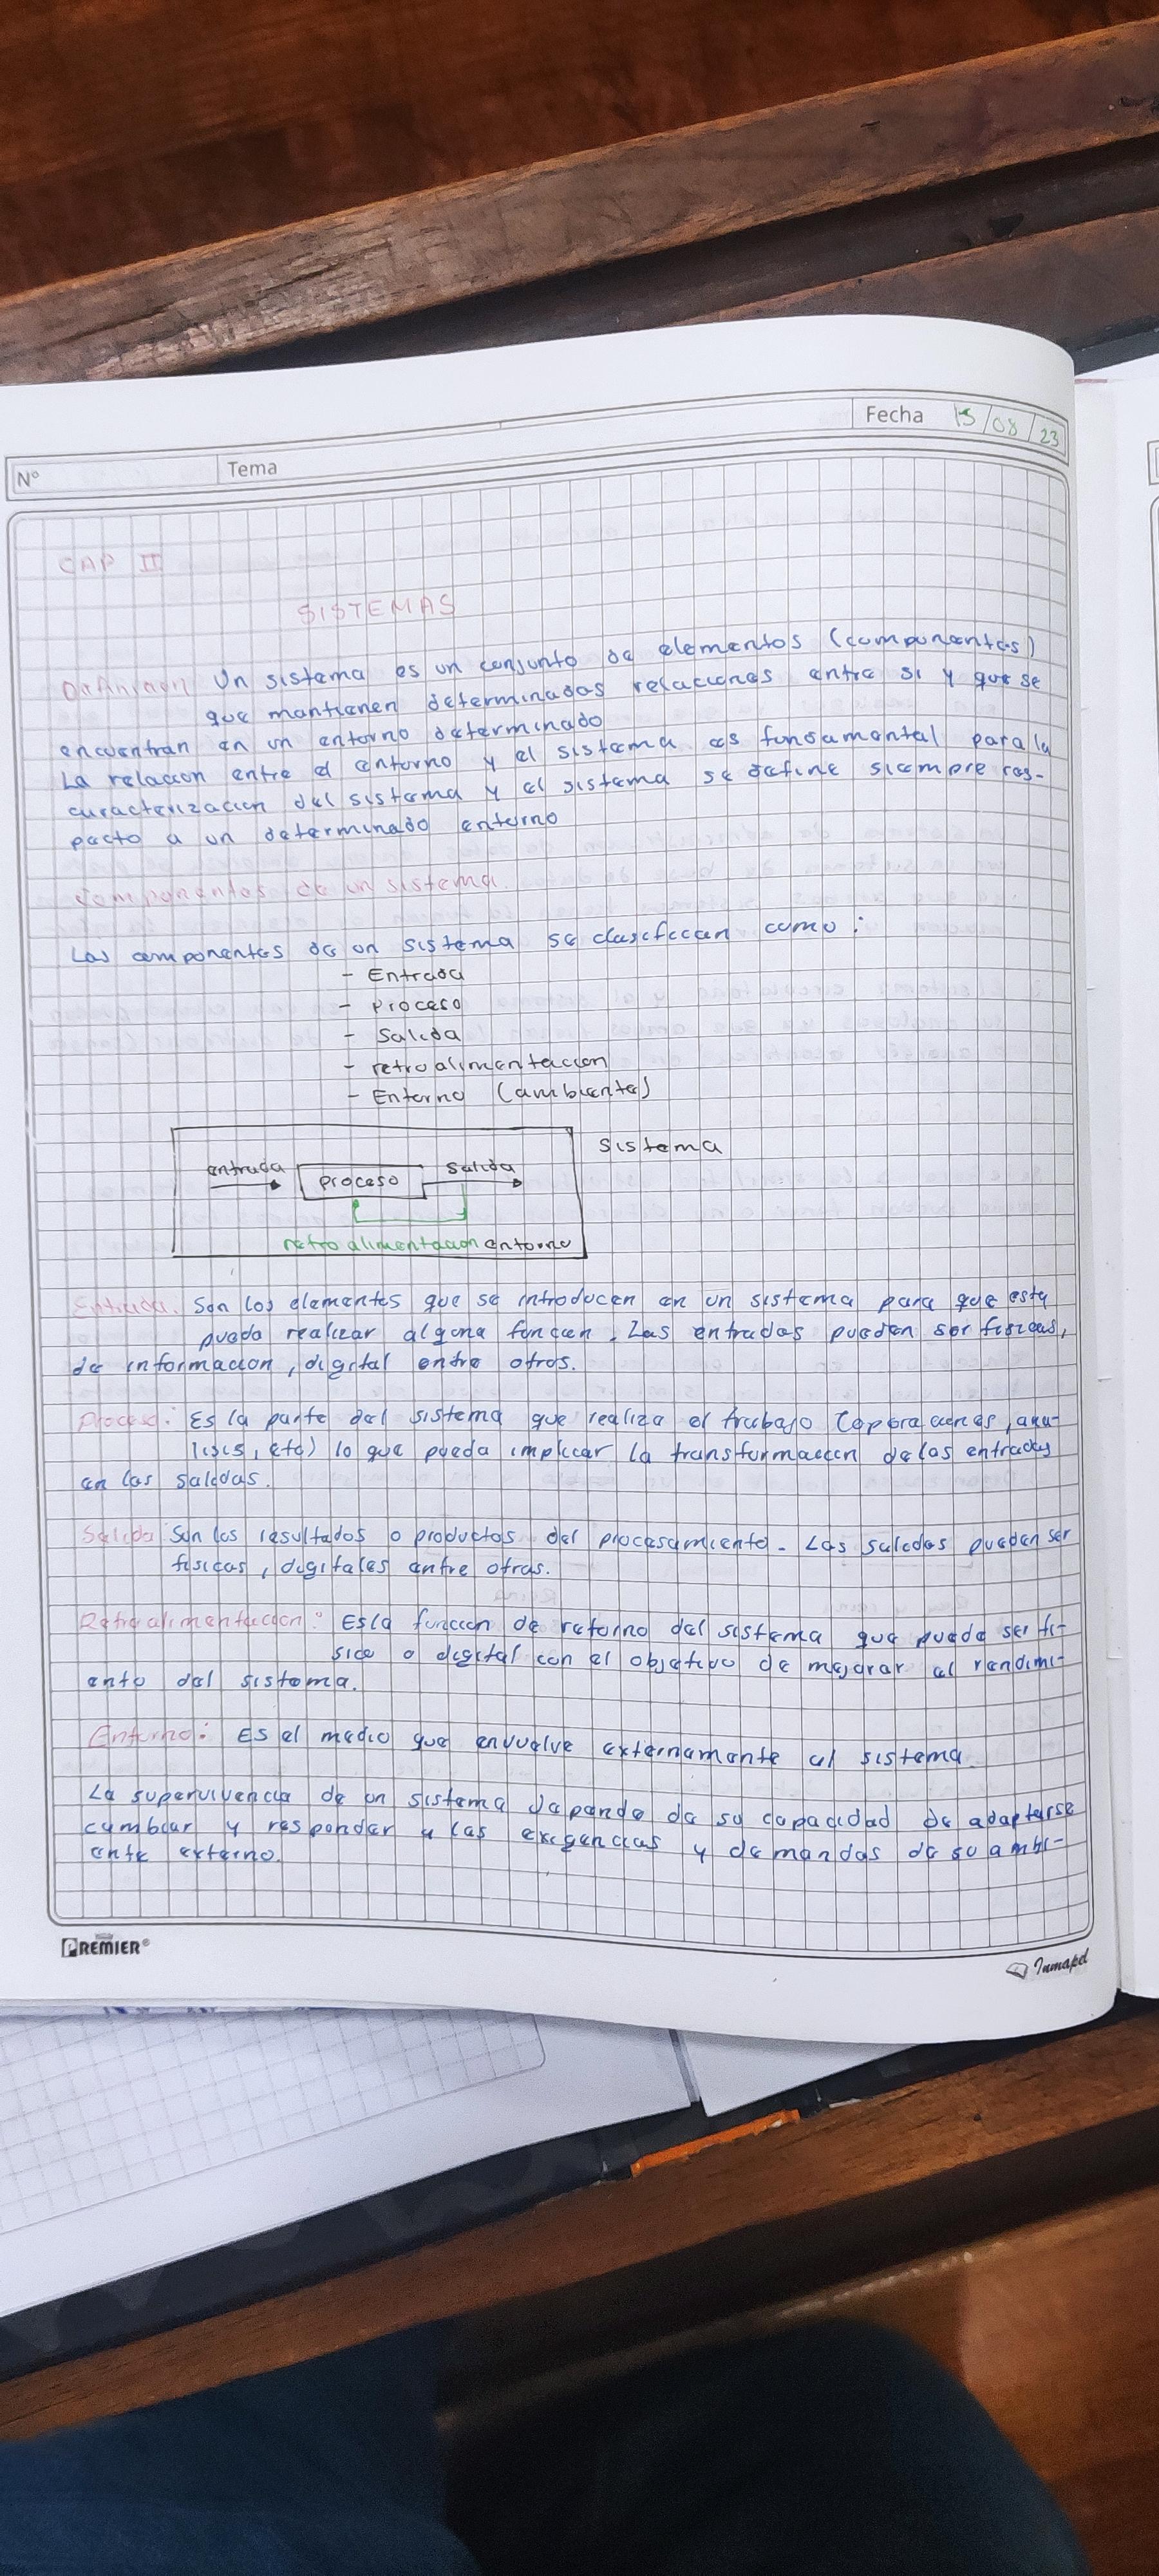 Fecha 15/08/23
Nº Tema
CAP II
SISTEMAS
Definicion Un sistema es un conjunto de elementos (componentes)
que mantienen determinadas relaciones entre si y que se
encuentran en un entorno determinado
La relacion entre el entorno y el sistema es fundamental para la
caracterizacion del sistema y el sistema se define siempre res-
pecto a un determinado entorno
Componentes de un sistema.
Los componentes de un sistema se clasifican como:
- Entrada
- Proceso
- Salida
- retroalimentacion
- Entorno (ambiente)
Sistema
entrada proceso salida
retroalimentacion entorno
Entrada. Son los elementos que se introducen en un sistema para que este
pueda realizar alguna funcion. Las entradas pueden ser fisicas,
de informacion, digital entre otros.
Proceso: Es la parte del sistema que realiza el trabajo (operaciones, ana-
lisis, etc) lo que puede implicar la transformacion de las entradas
en las salidas.
Salida: Son los resultados o productos del procesamiento. Las salidas pueden ser
fisicas, digitales entre otras.
Retroalimentacion: Es la funcion de retorno del sistema que puede ser fi-
sico o digital con el objetivo de mejorar el rendimi-
ento del sistema.
Entorno: Es el medio que envuelve externamente al sistema.
La supervivencia de un sistema depende de su capacidad de adaptarse
cambiar y responder a las exigencias y demandas de su ambi-
ente externo.
PREMIER®
Inmapel